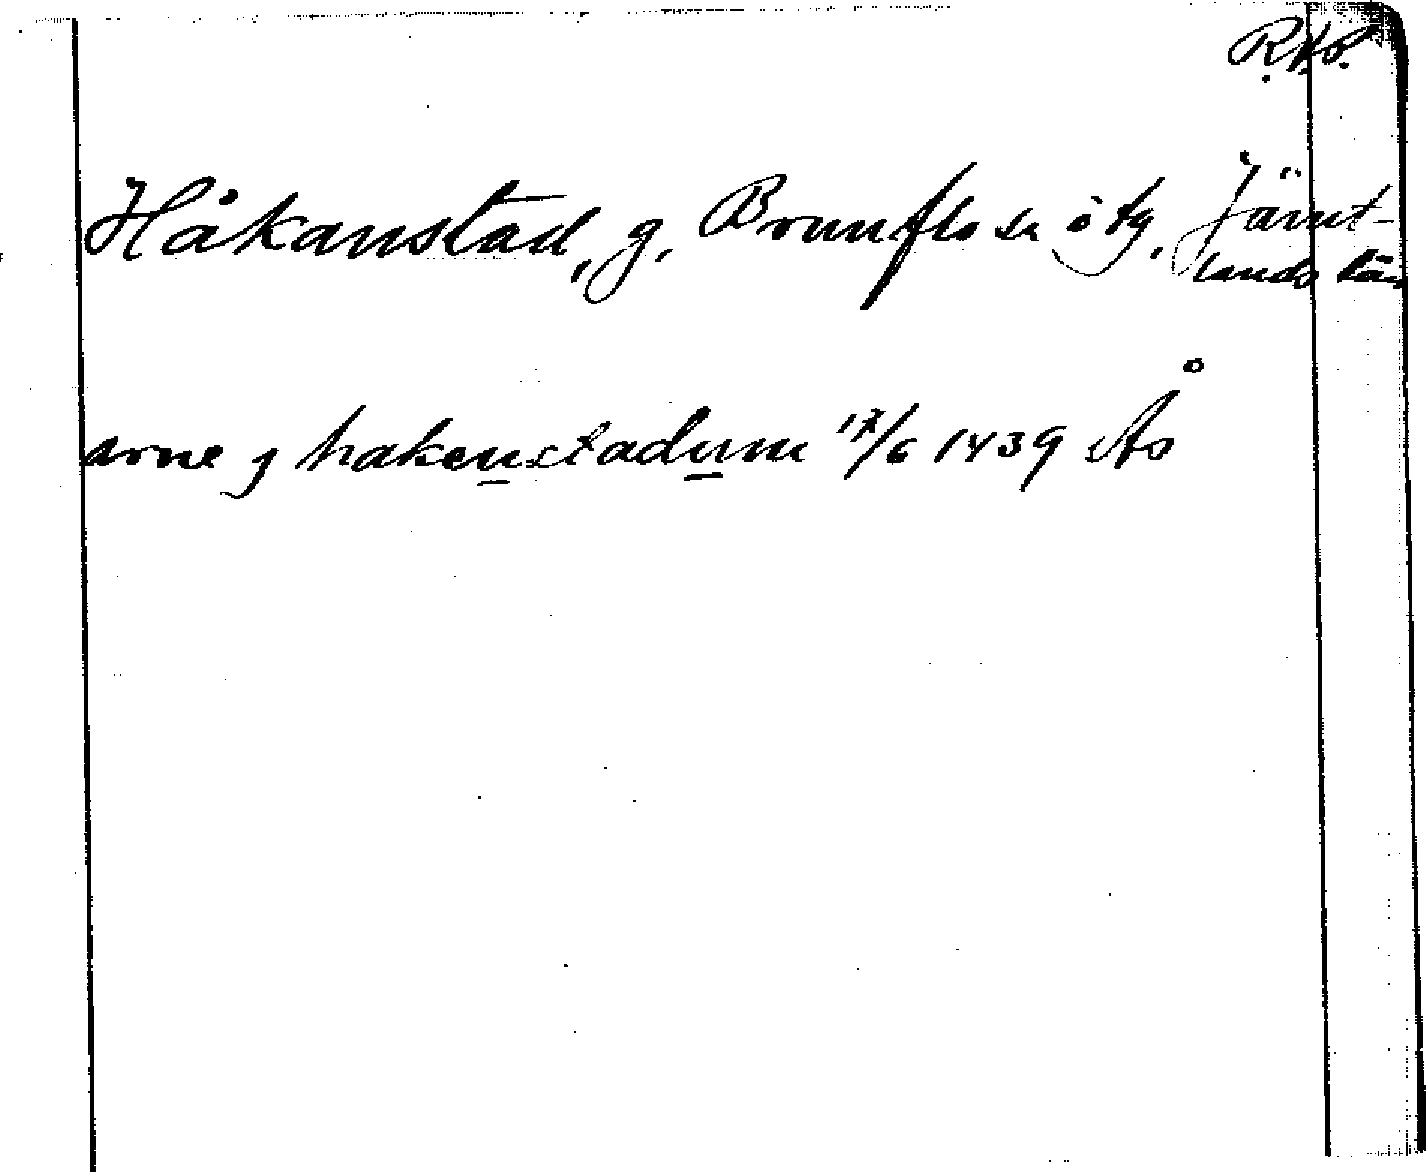 Håkanstad, g, Brunflo sn ö tg, Jämt-
lands län
arne j hakenstadum 17/6 1439 Ås